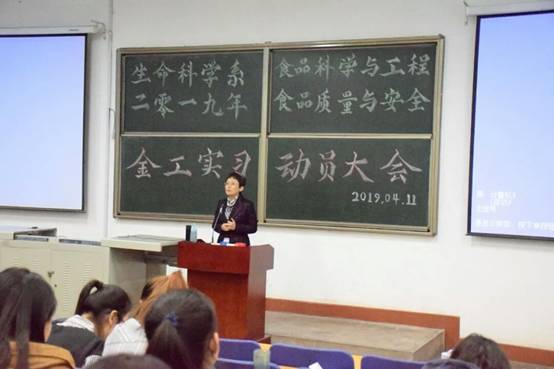 生命科学系
二零一九年
食品科学与工程
食品质量与安全
金工实习 动员大会
2019.04.11